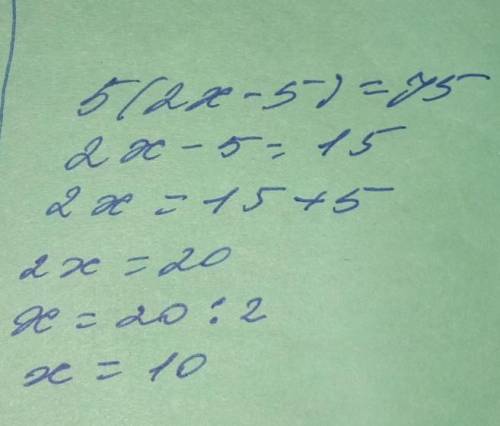 5(2x-5)=75
2x-5=15
2x=15+5
2x=20
x=20:2
x=10